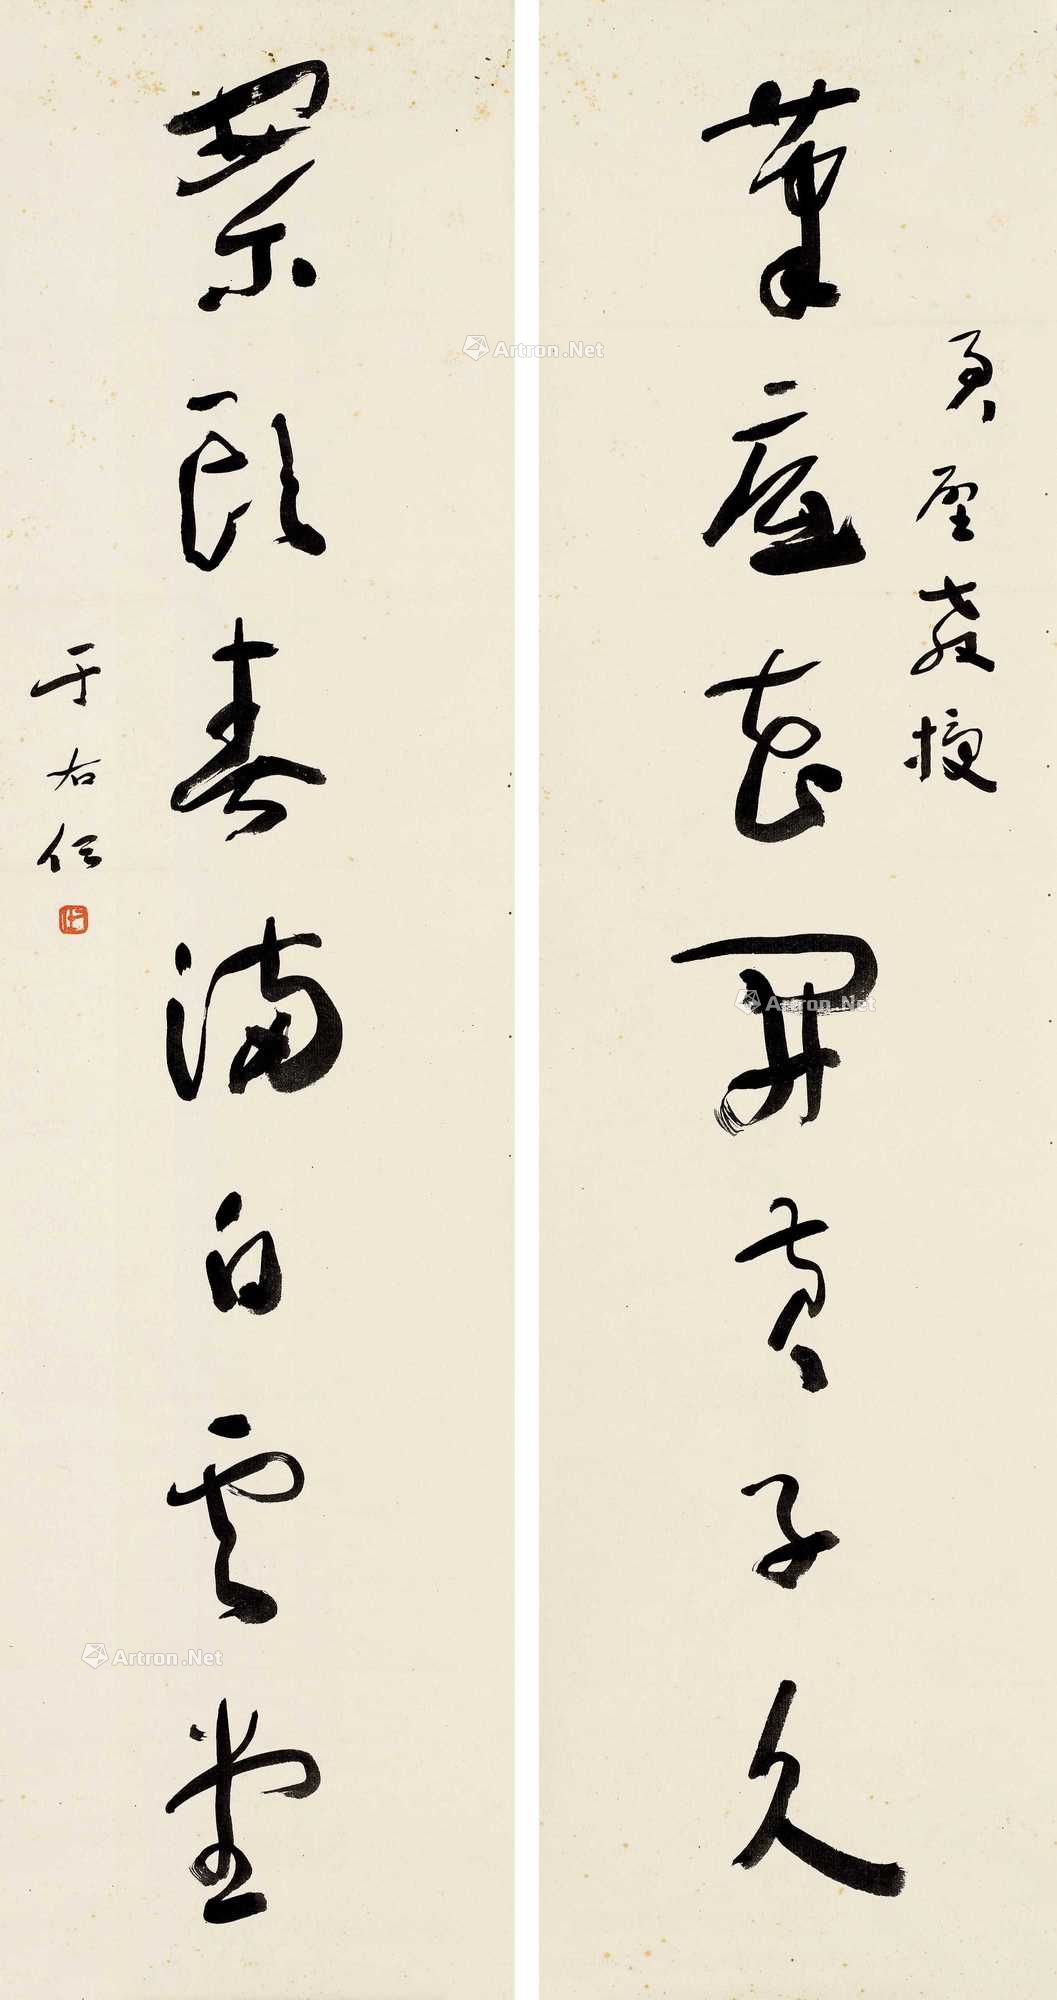 君璧教授
筆底花開黃子久
案頭春滿白雲堂
于右任
Artron.Net
Artron.Net
Artron.Net